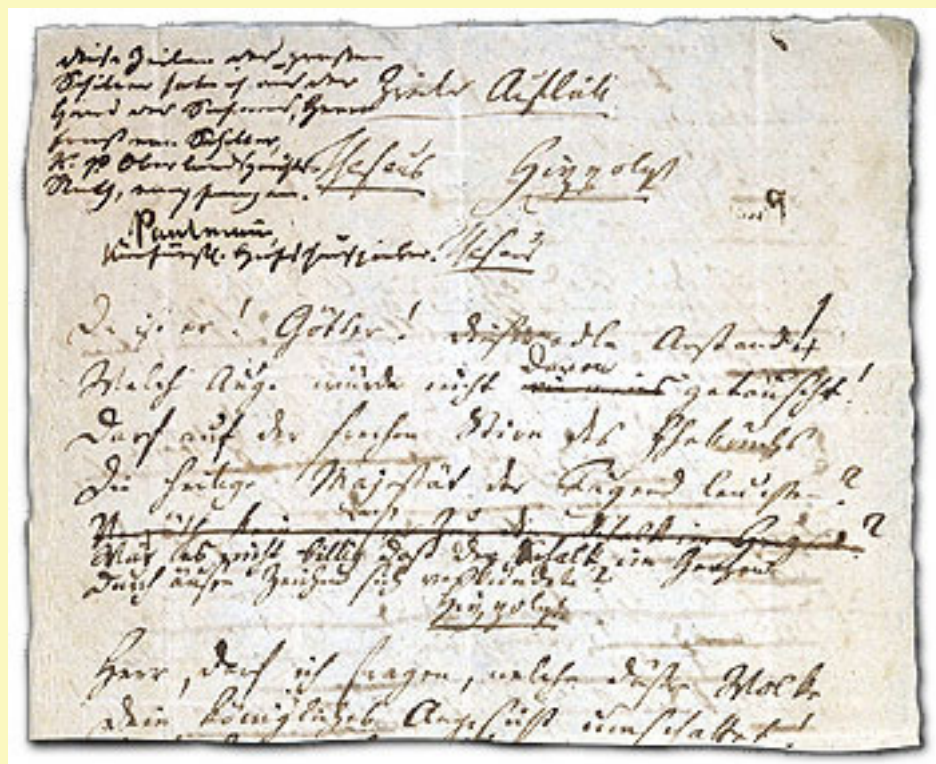 Diese Zeilen des grossen
Schiller habe ich aus der
Hand des Sohnes, Herrn
Ernst von Schiller,
K. P. Oberlandsgerichts-
Rath, empfangen.
Kurfürstl. Hofschauspieler.
Zweiter Auftritt.
Theseus Hippolyt
Theseus
Da ist er! Götter! Dieser edle Anstand!
Welch Auge würde nicht davon getäuscht!
Darf auf der frechen Stirn des Ehebruchs
Die heilige Majestät der Tugend leuchten?
War es nicht billig daß der Schalk im Herzen
Durch äußre Zeichen sich verkündete?
Hippolyt
Herr, darf ich fragen, welche düstre Wolke
Dein königliches Angesicht umschattet?